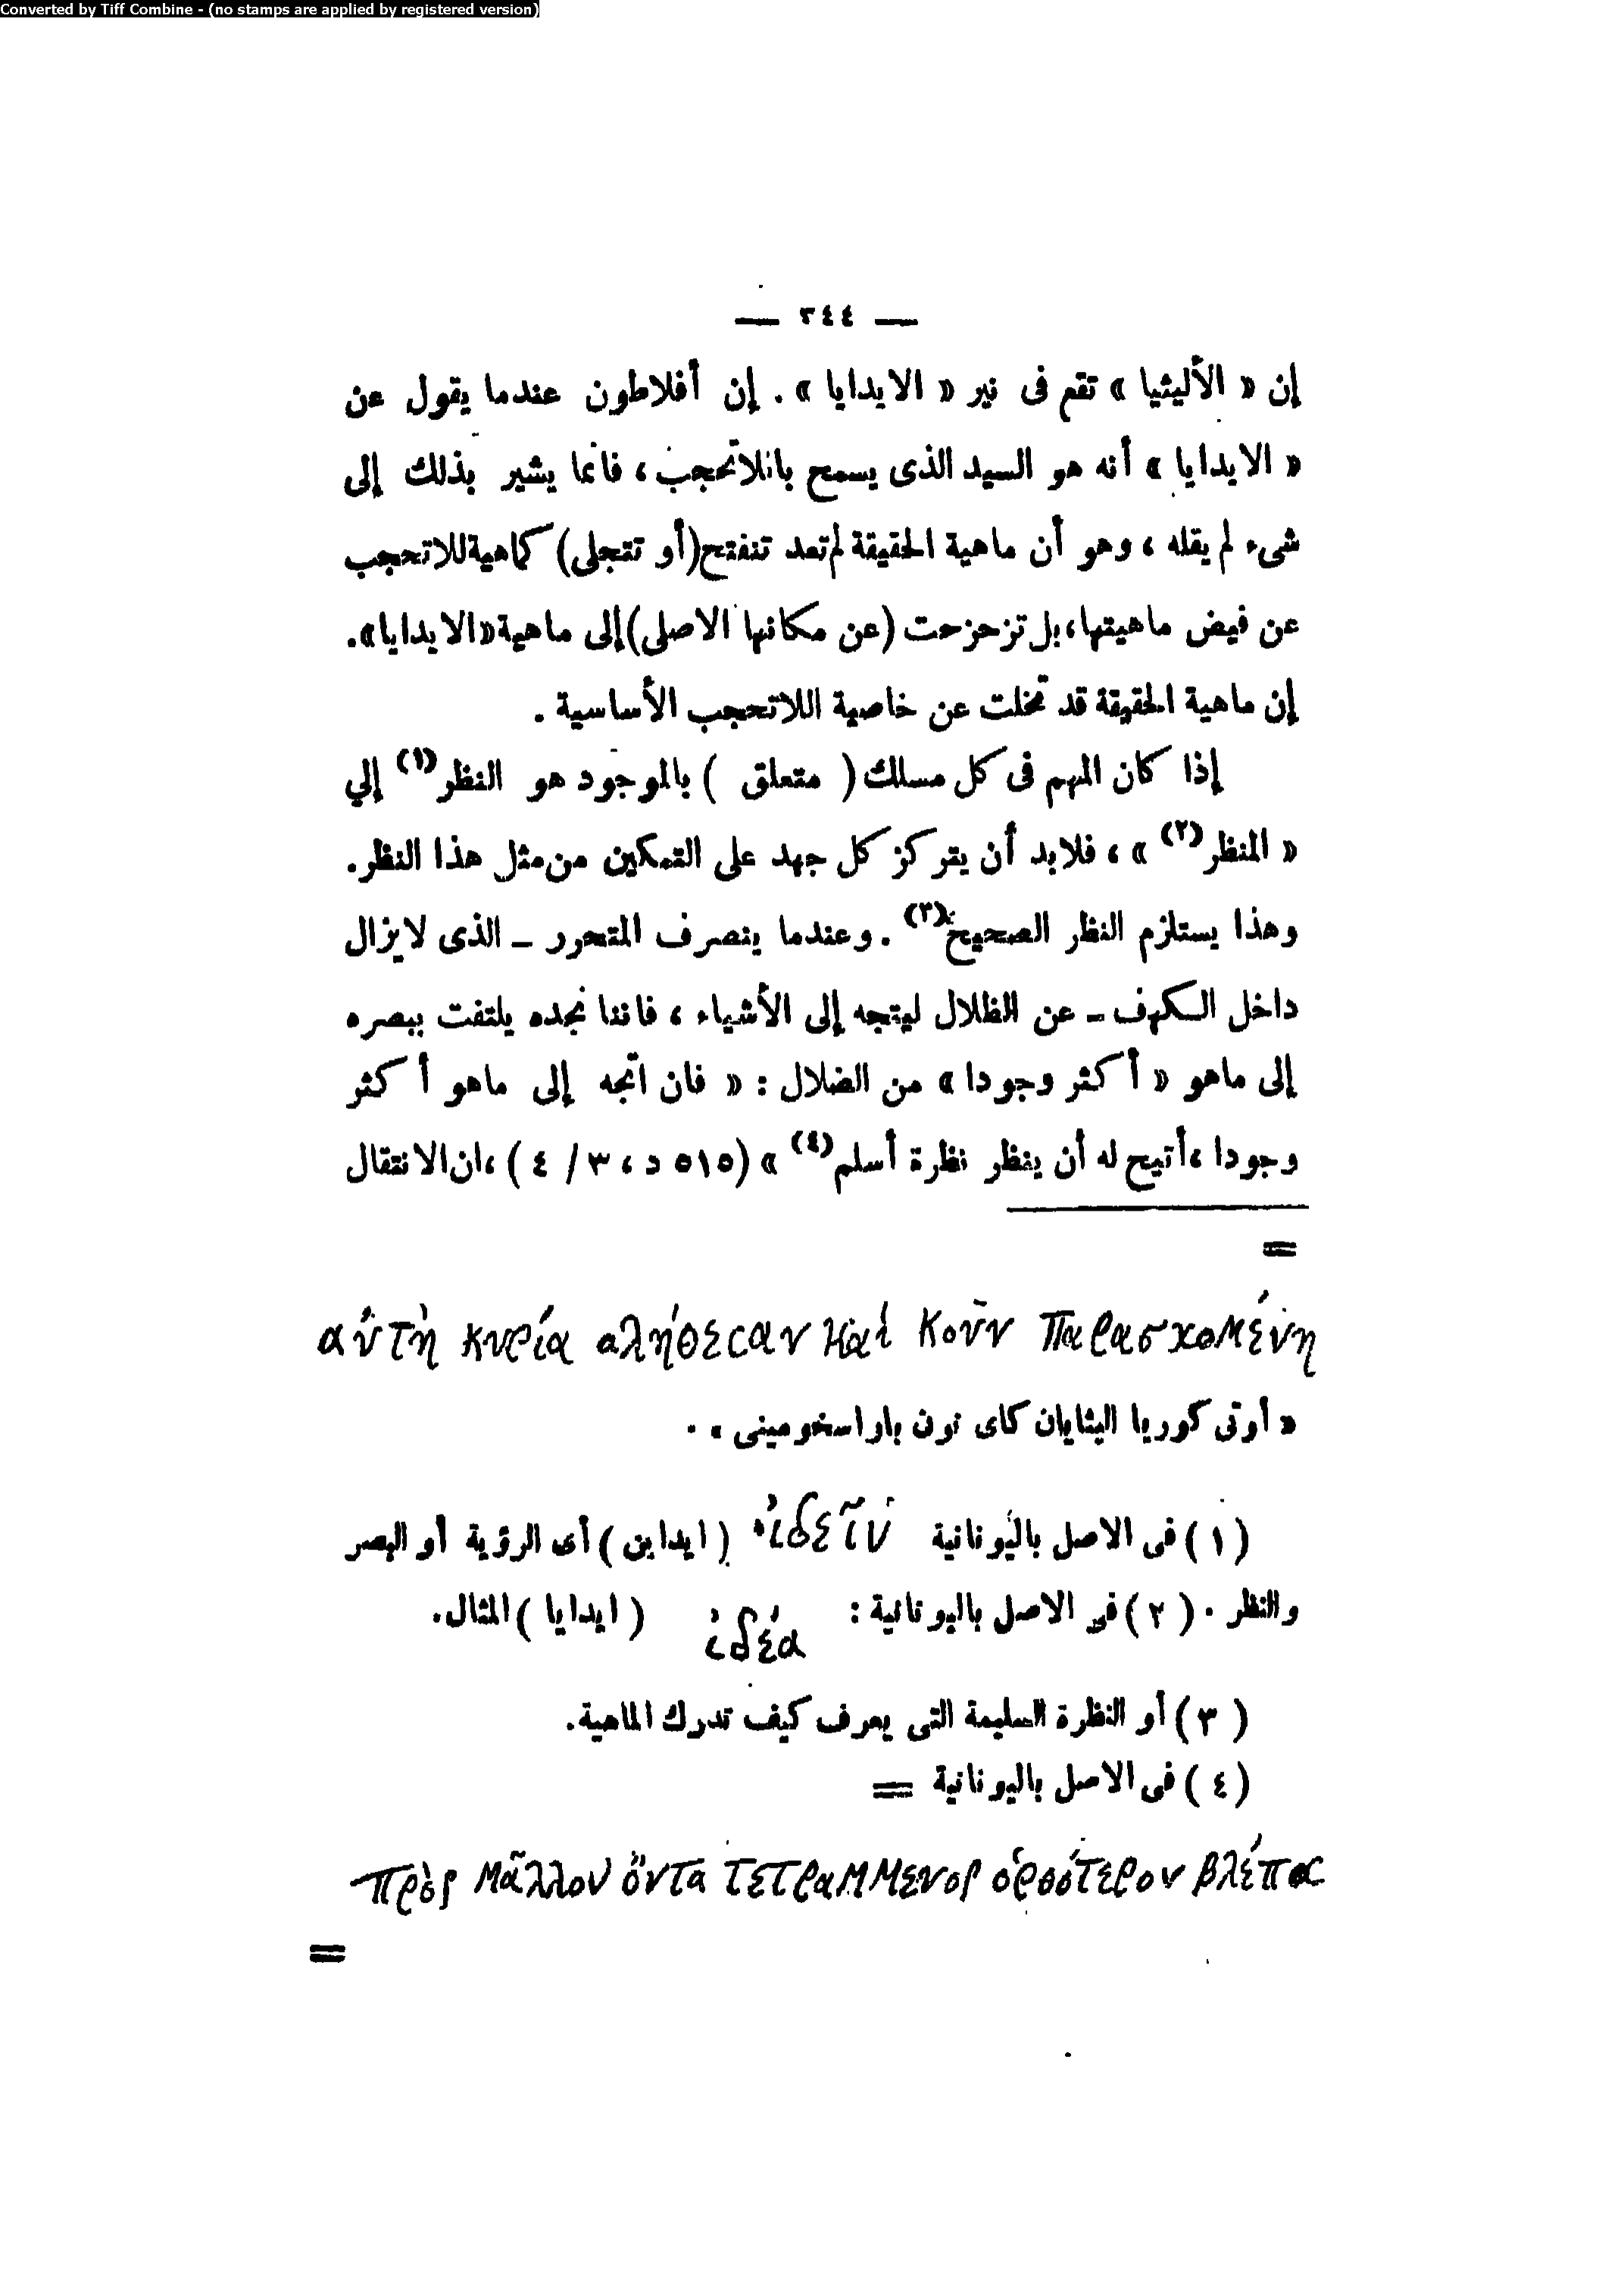 Converted by Tiff Combine - (no stamps are applied by registered version)
— ٣٤٤ —
إن « الأليثيا » تقع فى نير « الايدايا » . إن أفلاطون عندما يقول عن
« الايدايا » أنه هو السيد الذى يسمح باللاتحجب ، فانما يشير بذلك إلى
شىء لم يقله ، وهو أن ماهية الحقيقة لم تعد تنفتح (أو تتجلى) كماهية للاتحجب
عن فيض ماهيتها، بل تزحزحت (عن مكانها الاصلى) إلى ماهية «الايدايا».
إن ماهية الحقيقة قد تخلت عن خاصية اللاتحجب الأساسية .
إذا كان المهم فى كل مسلك ( متعلق ) بالموجود هو النظر(١) إلي
« المنظر(٢) » ، فلابد أن يتركز كل جهد على التمكين من مثل هذا النظر .
وهذا يستلزم النظر الصحيح(٣) . وعندما ينصرف المتحرر – الذى لايزال
داخل الكهف – عن الظلال ليتجه إلى الأشياء ، فاننا نجده يلتفت ببصره
إلى ماهو « أكثر وجودا » من الضلال : « فان اتجه إلى ماهو أكثر
وجودا ، أتيح له أن ينظر نظرة أسلم(٤) » (٥١٥ د ، ٣ / ٤ ) ، ان الانتقال
=
αὐτὴ κυρία αλήθεεαν καὶ κοῦν παρασχομένη
« أوتى كوريا اليثايان كاى نون باراسخومينى » .
( ١ ) فى الاصل باليونانية ἰδεῖν ( ايداين ) أى الرؤية أو البصر
والنظر . ( ٢ ) فى الاصل باليونانية : ἰδέα ( ايدايا ) المثال.
( ٣ ) أو النظرة السليمة التى يعرف كيف تدرك الماهية.
( ٤ ) فى الاصل باليونانية =
πρὸς μᾶλλον ὄντα τετραμμενος ὀρθότερον βλέποι
=